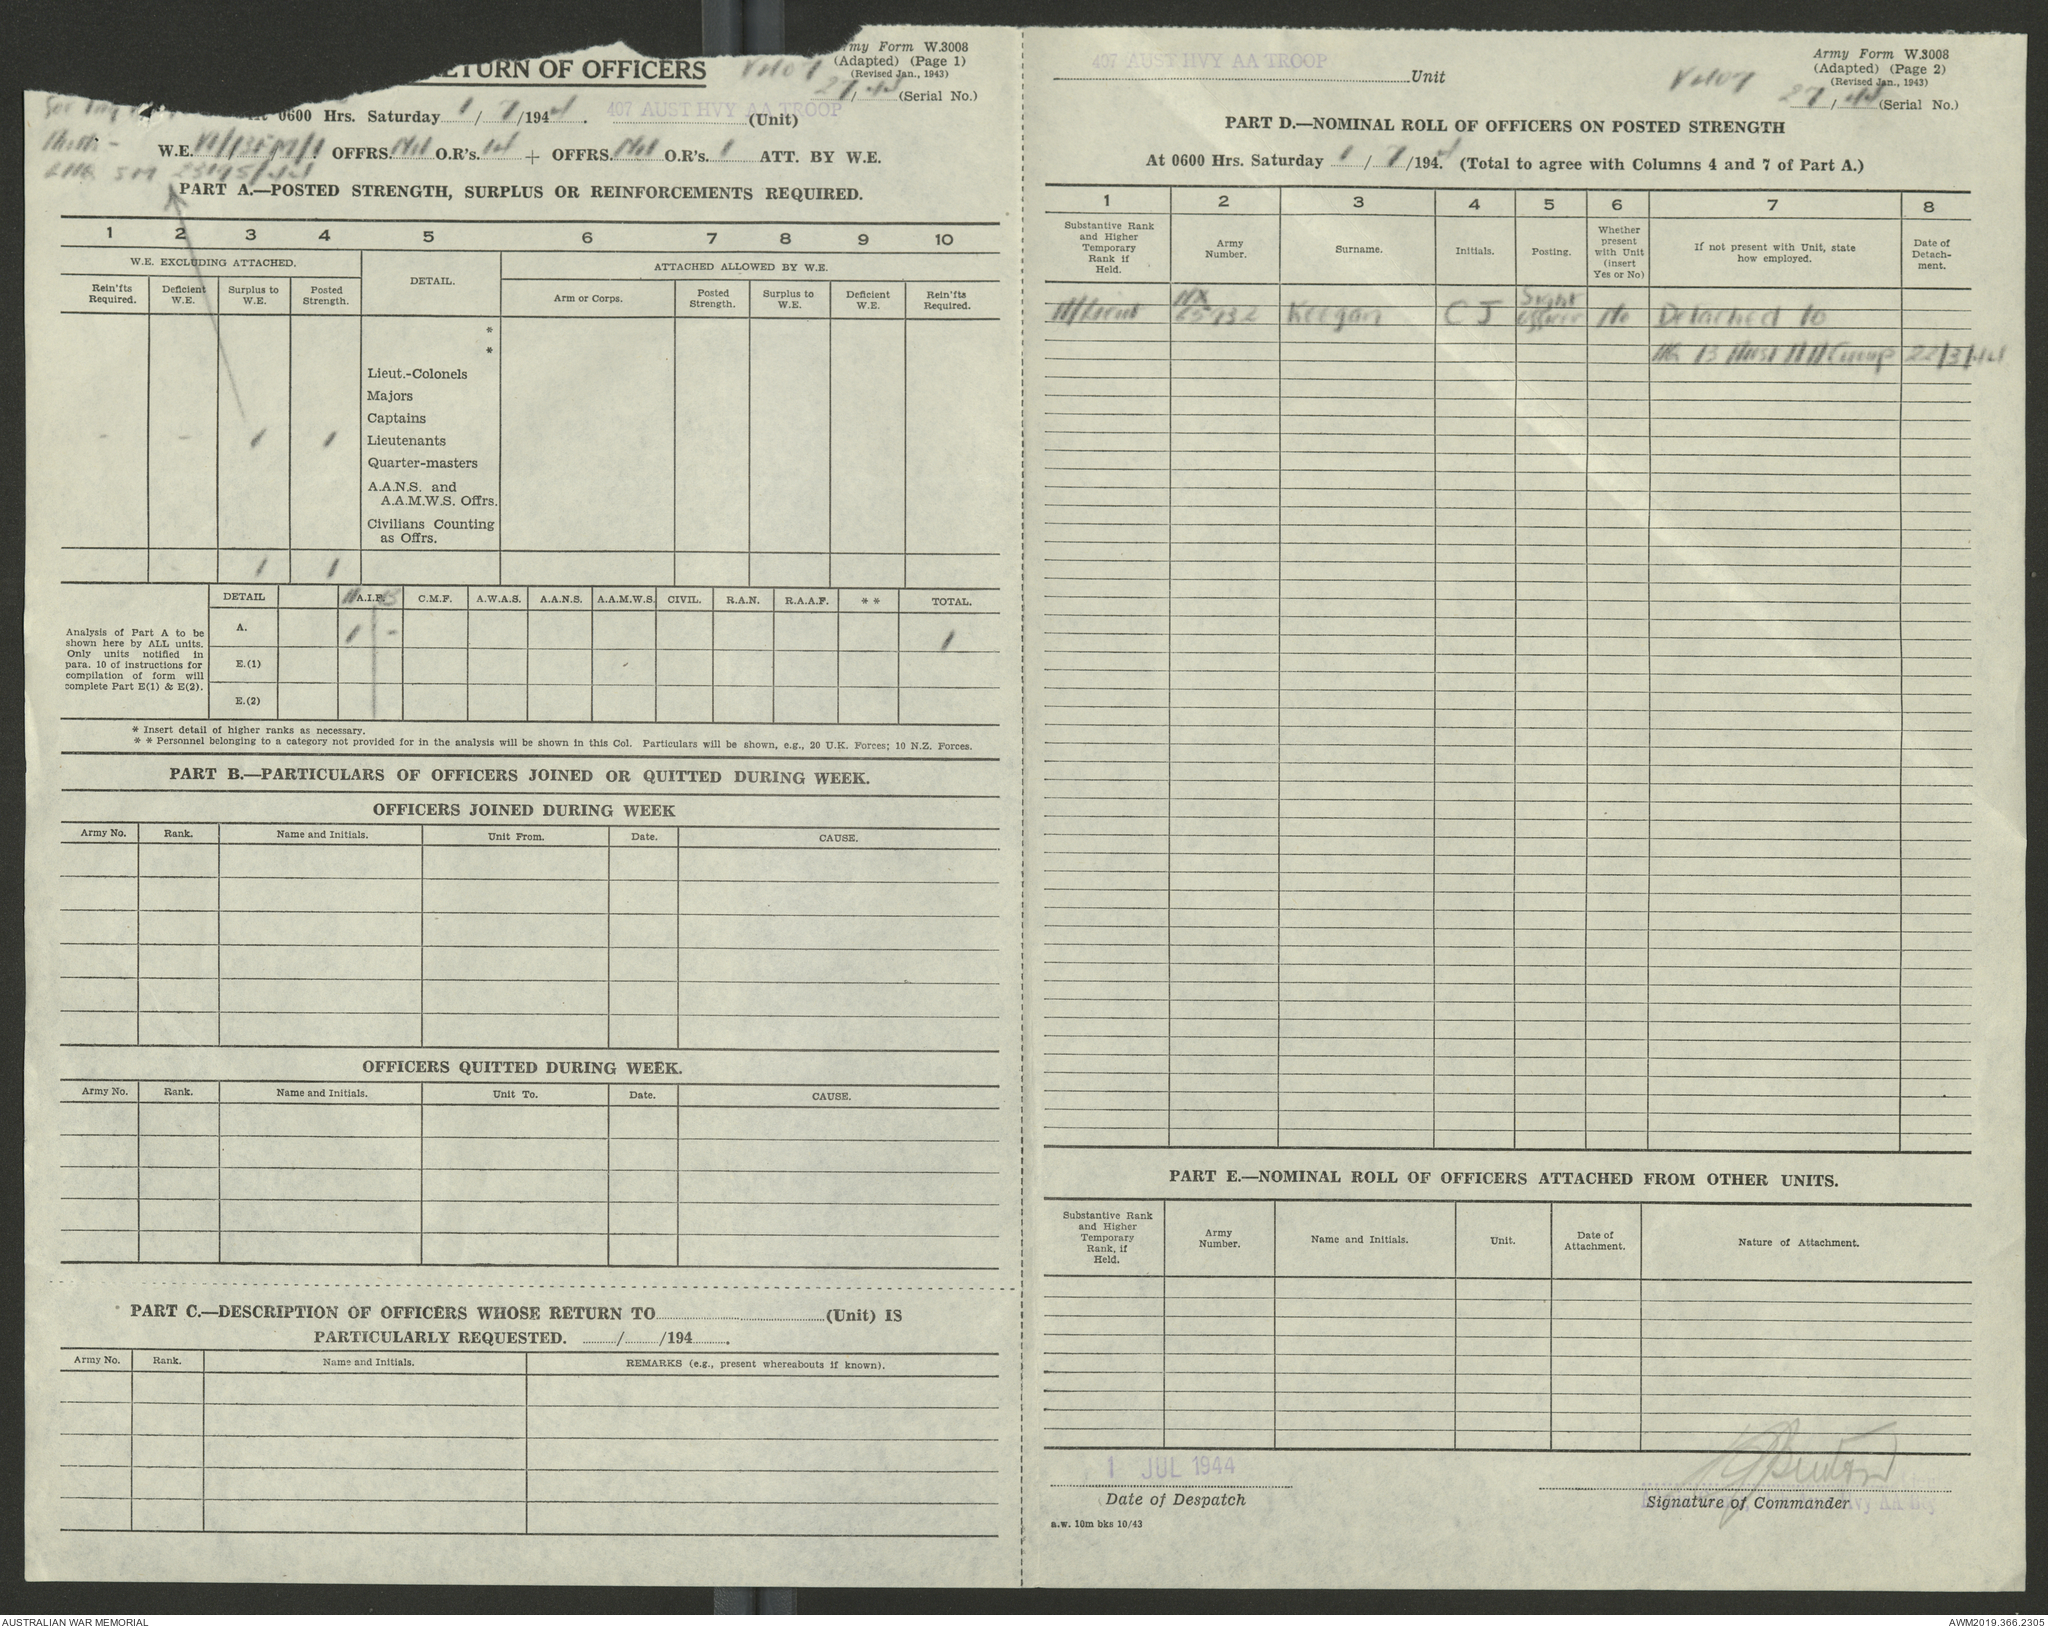 RETURN OF OFFICERS
Army Form W.3008
(Adapted) (Page 1)
(Revised Jan., 1943)
27/44 (Serial No.)
At 0600 Hrs. Saturday 1/7/1944. 407 AUST HVY AA TROOP (Unit)
W.E. OFFRS. Nil O.R's. 14 + OFFRS. Nil O.R's. 1 ATT. BY W.E.
PART A.—POSTED STRENGTH, SURPLUS OR REINFORCEMENTS REQUIRED.
1 2 3 4 5 6 7 8 9 10
W.E. EXCLUDING ATTACHED. DETAIL. ATTACHED ALLOWED BY W.E.
Rein'fts Required. Deficient W.E. Surplus to W.E. Posted Strength. Arm or Corps. Posted Strength. Surplus to W.E. Deficient W.E. Rein'fts Required.
*
*
Lieut.-Colonels
Majors
Captains
- - 1 1 Lieutenants
Quarter-masters
A.A.N.S. and
A.A.M.W.S. Offrs.
Civilians Counting
as Offrs.
1 1
DETAIL A.I.F. C.M.F. A.W.A.S. A.A.N.S. A.A.M.W.S. CIVIL. R.A.N. R.A.A.F. * * TOTAL.
Analysis of Part A to be
shown here by ALL units.
Only units notified in
para. 10 of instructions for
compilation of form will
complete Part E(1) & E(2).
A. 1 - 1
E.(1)
E.(2)
* Insert detail of higher ranks as necessary.
* * Personnel belonging to a category not provided for in the analysis will be shown in this Col. Particulars will be shown, e.g., 20 U.K. Forces; 10 N.Z. Forces.
PART B.—PARTICULARS OF OFFICERS JOINED OR QUITTED DURING WEEK.
OFFICERS JOINED DURING WEEK
Army No. Rank. Name and Initials. Unit From. Date. CAUSE.
OFFICERS QUITTED DURING WEEK.
Army No. Rank. Name and Initials. Unit To. Date. CAUSE.
PART C.—DESCRIPTION OF OFFICERS WHOSE RETURN TO (Unit) IS
PARTICULARLY REQUESTED. / /194 .
Army No. Rank. Name and Initials. REMARKS (e.g., present whereabouts if known).
407 AUST HVY AA TROOP Unit
Army Form W.3008
(Adapted) (Page 2)
(Revised Jan., 1943)
27/44 (Serial No.)
PART D.—NOMINAL ROLL OF OFFICERS ON POSTED STRENGTH
At 0600 Hrs. Saturday 1/7/1944. (Total to agree with Columns 4 and 7 of Part A.)
1 2 3 4 5 6 7 8
Substantive Rank and Higher Temporary Rank if Held. Army Number. Surname. Initials. Posting. Whether present with Unit (insert Yes or No) If not present with Unit, state how employed. Date of Detachment.
Lieut NX Keegan C J No Detached to
HQ 13 Aust AA Group 22/3/44
PART E.—NOMINAL ROLL OF OFFICERS ATTACHED FROM OTHER UNITS.
Substantive Rank and Higher Temporary Rank, if Held. Army Number. Name and Initials. Unit. Date of Attachment. Nature of Attachment.
1 JUL 1944
Date of Despatch
Signature of Commander
a.w. 10m bks 10/43
AUSTRALIAN WAR MEMORIAL
AWM2019.366.2305